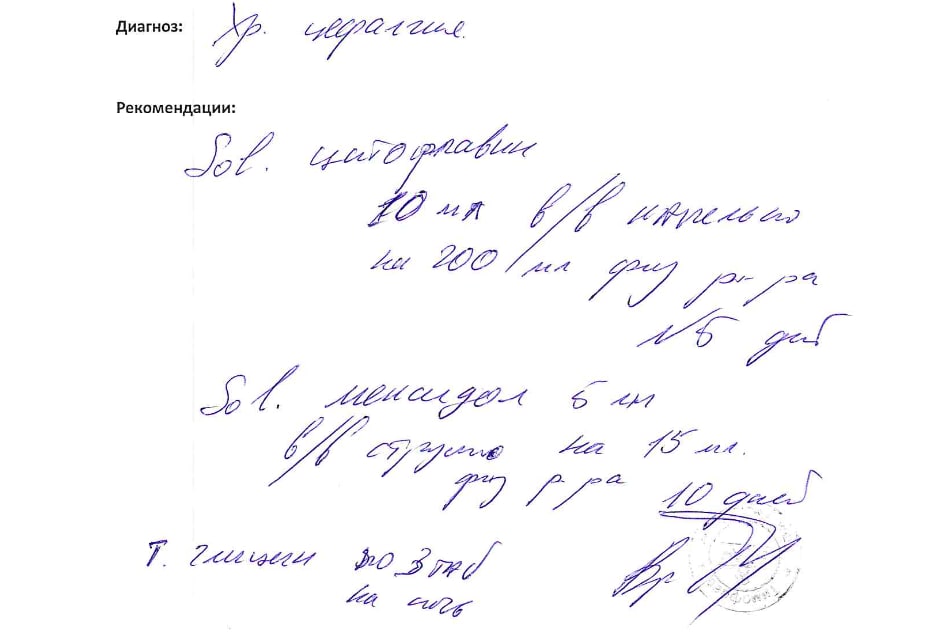 Диагноз: Хр. цефалгия.
Рекомендации:
Sol. цитофлавин
10 мл в/в капельно
на 200 мл физ р-ра
№5 дней
Sol. мексидол 5 мл
в/в струйно на 15 мл.
физ р-ра 10 дней
Т. глицин по 3 таб
на ночь
Вр